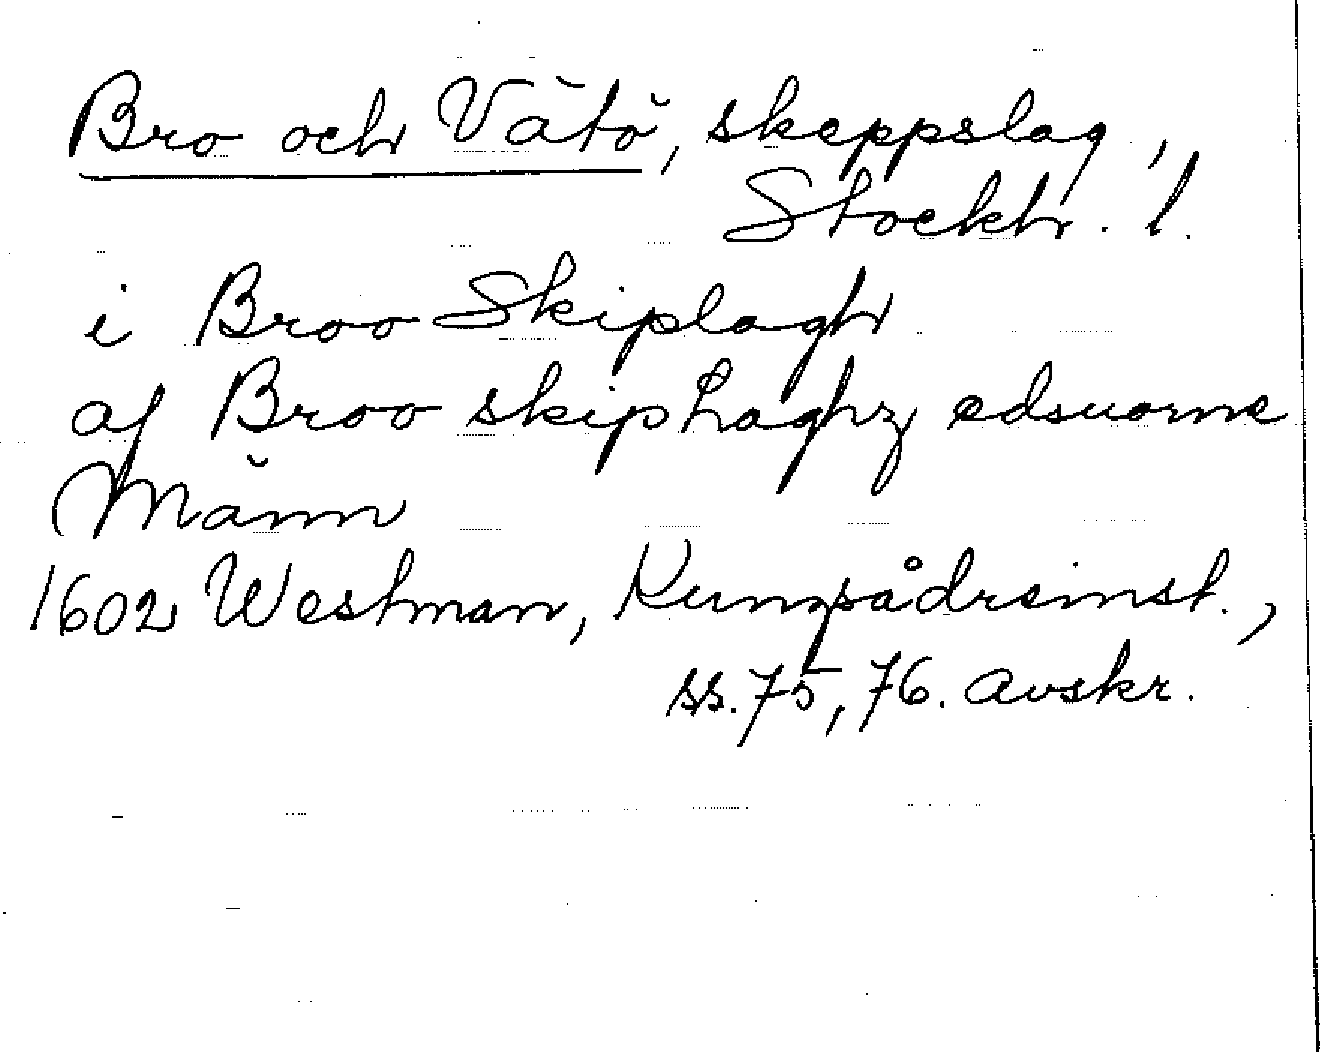 Bro och Vätö, skeppslag,
Stockh. l.
i Broo Skiplagh
af Broo skiplaghz edsuorne
Männ
1602 Westman, Kungsådreinst.,
ss. 75, 76. avskr.